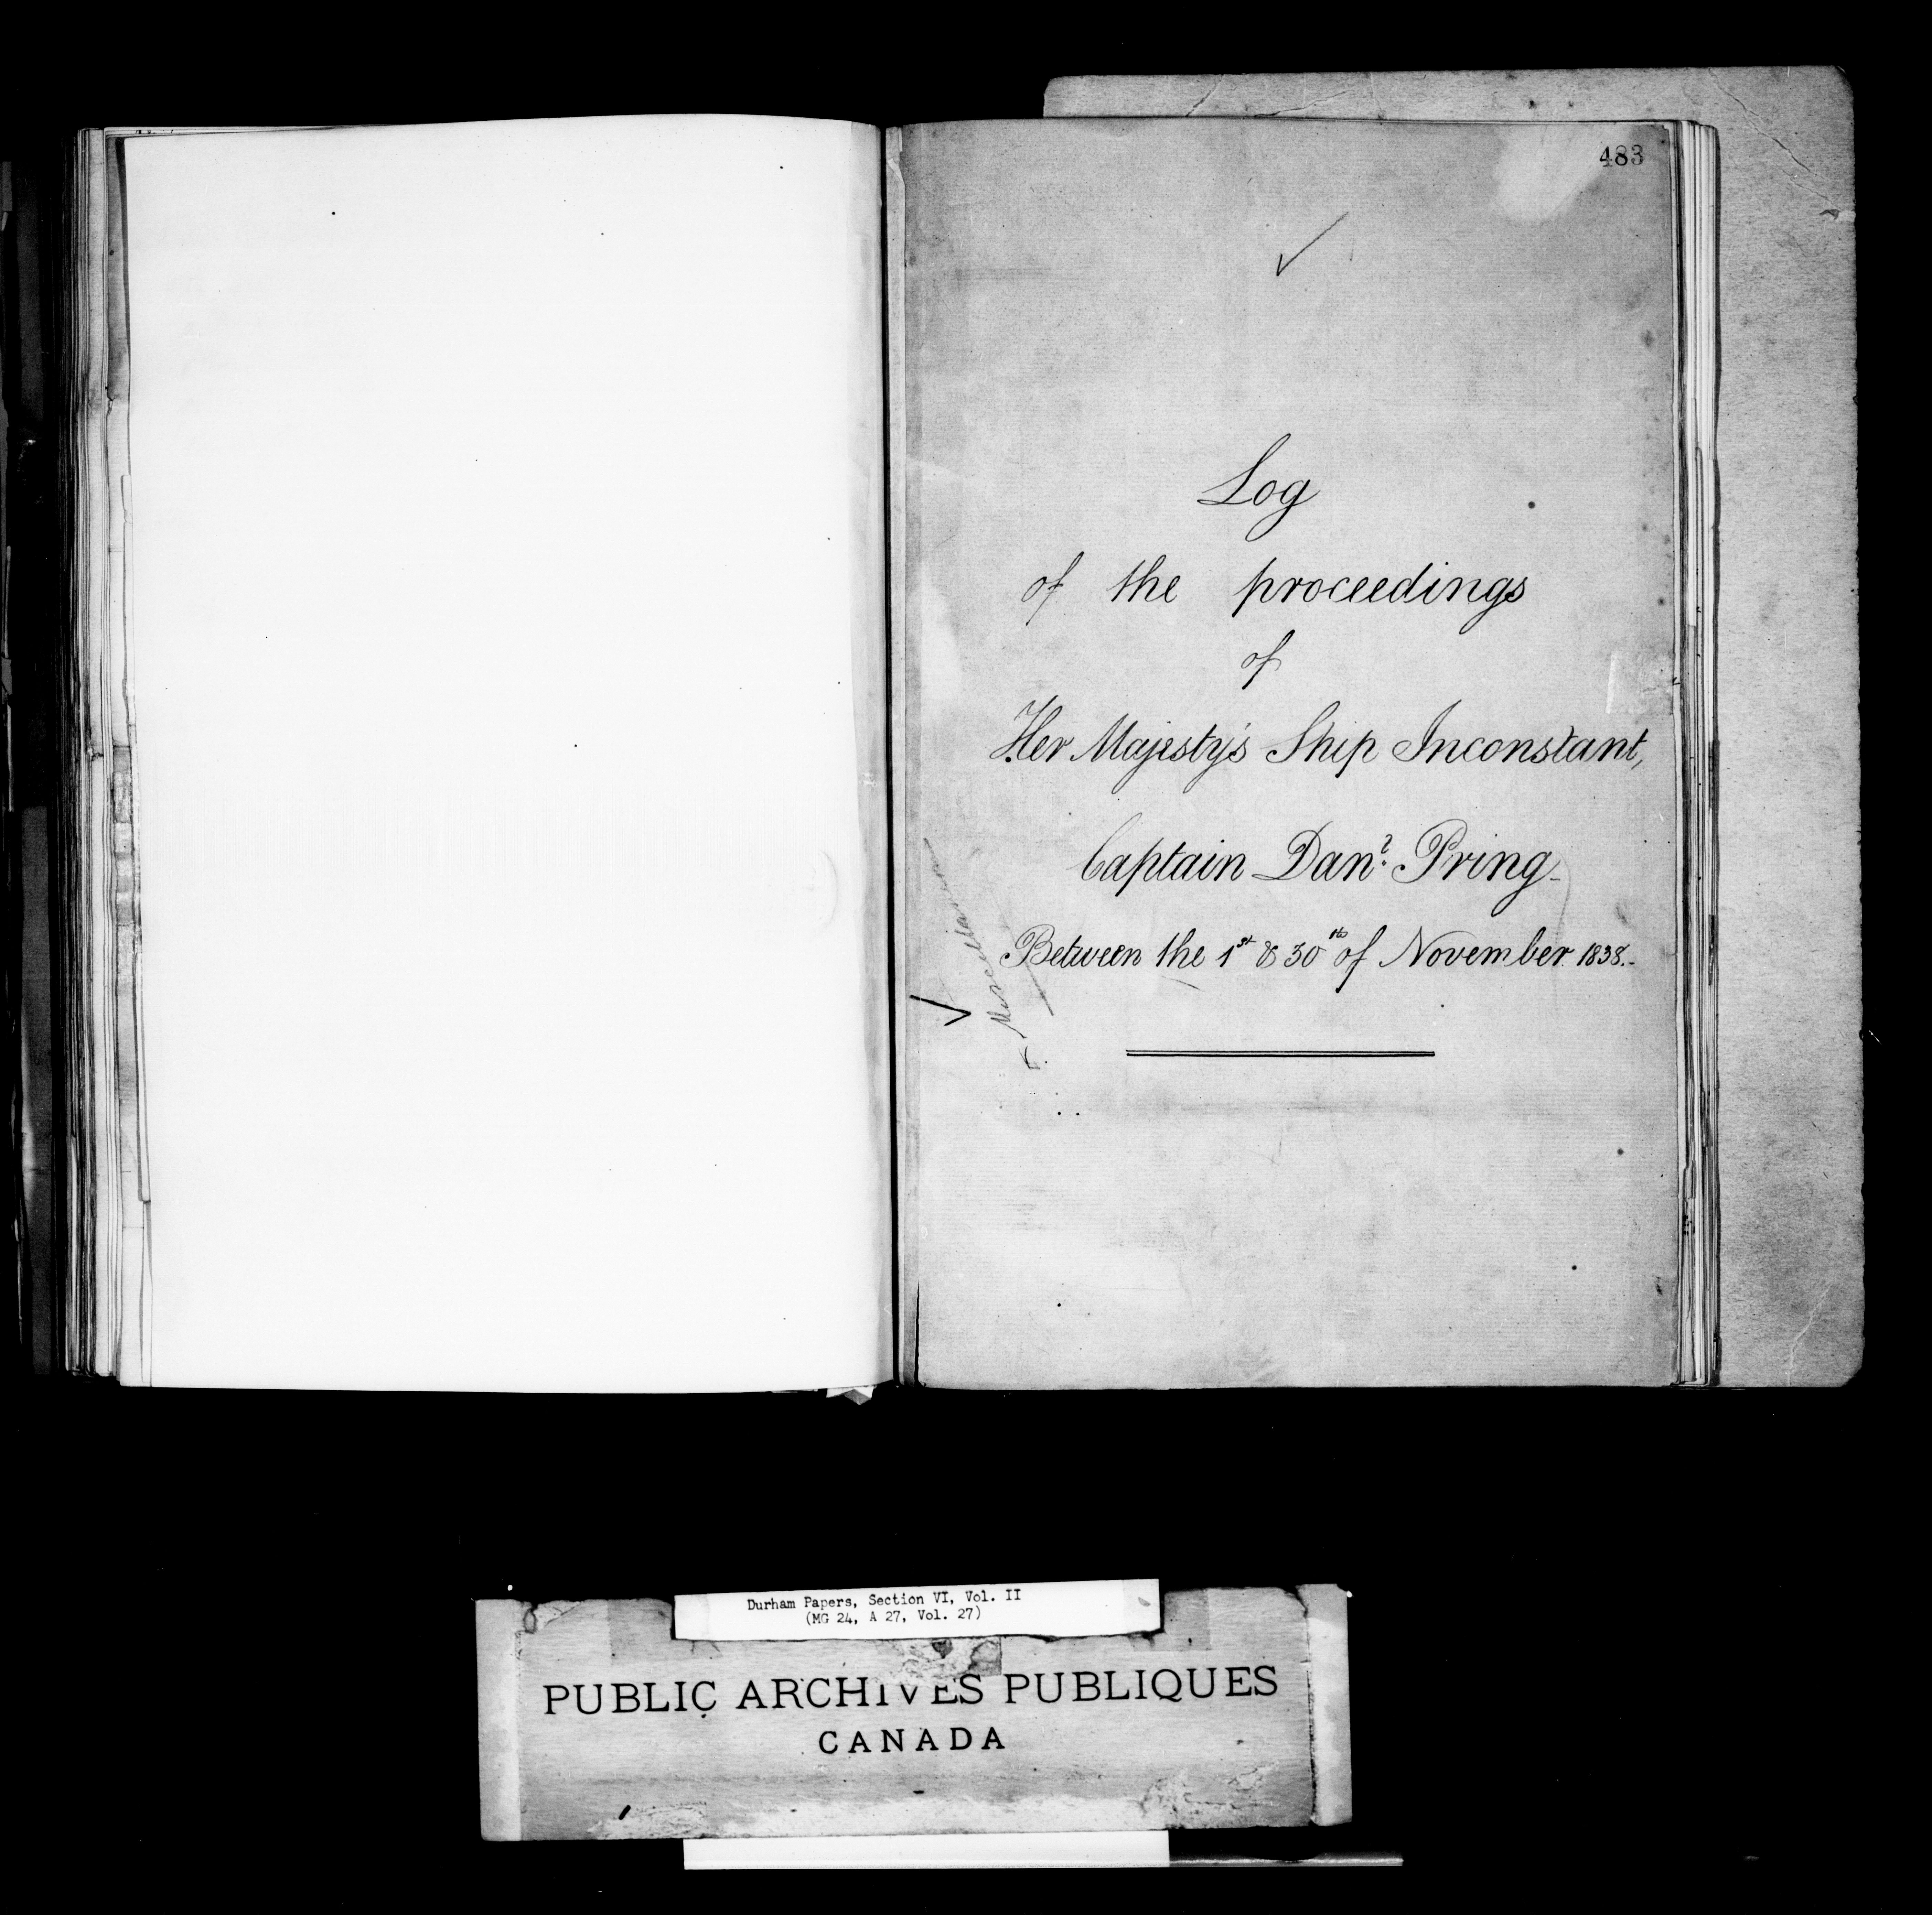 483
Log
of the proceedings
of
Her Majesty's Ship Inconstant,
Captain Danl. Pring
Between the 1st & 30th of November 1838.
Miscellaneous
Durham Papers, Section VI, Vol. II
(MG 24, A 27, Vol. 27)
PUBLIC ARCHIVES PUBLIQUES
CANADA